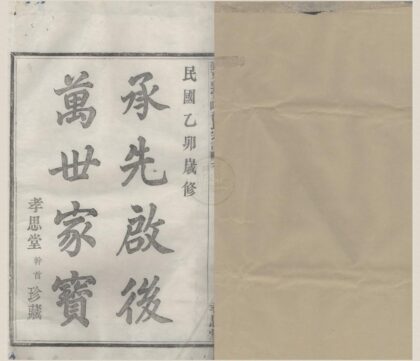 民國乙卯歲修
承先啟後
萬世家寶
孝思堂幹首珍藏